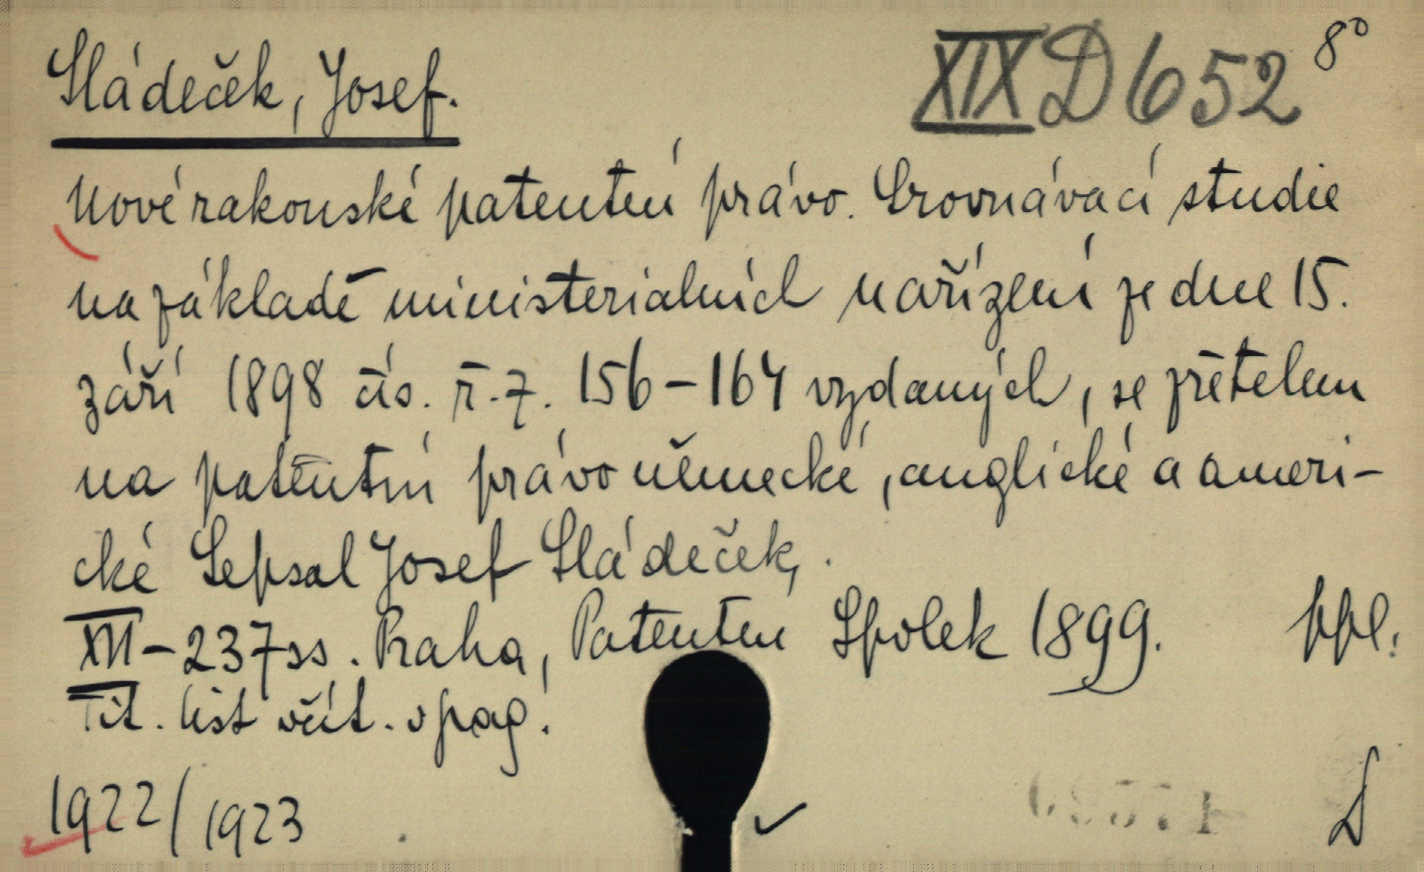 Sládeček, Josef.
XIX D 652 8°
Nové rakouské patentní právo. Srovnávací studie
na základě ministerialních nařízení ze dne 15.
září 1898 čís. ř. z. 156-164 vydaných, se zřetelem
na patentní právo německé, anglické a ameri-
cké Sepsal Josef Sládeček.
XII-237 ss. Praha, Patentní Spolek 1899. ppl.
Tit. list včít. v pag.
1922/1923
D